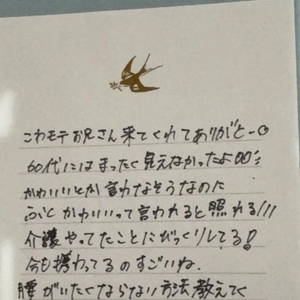 こわモテお兄さん来てくれてありがとー
60代にはまったく見えなかったよ
かわいいとか言わなそうなのに
ふとかわいいって言われると照れる!!!
介護やってたことにびっくりしてる!
今も携わってるのすごいね.
腰がいたくならない方法教えてく